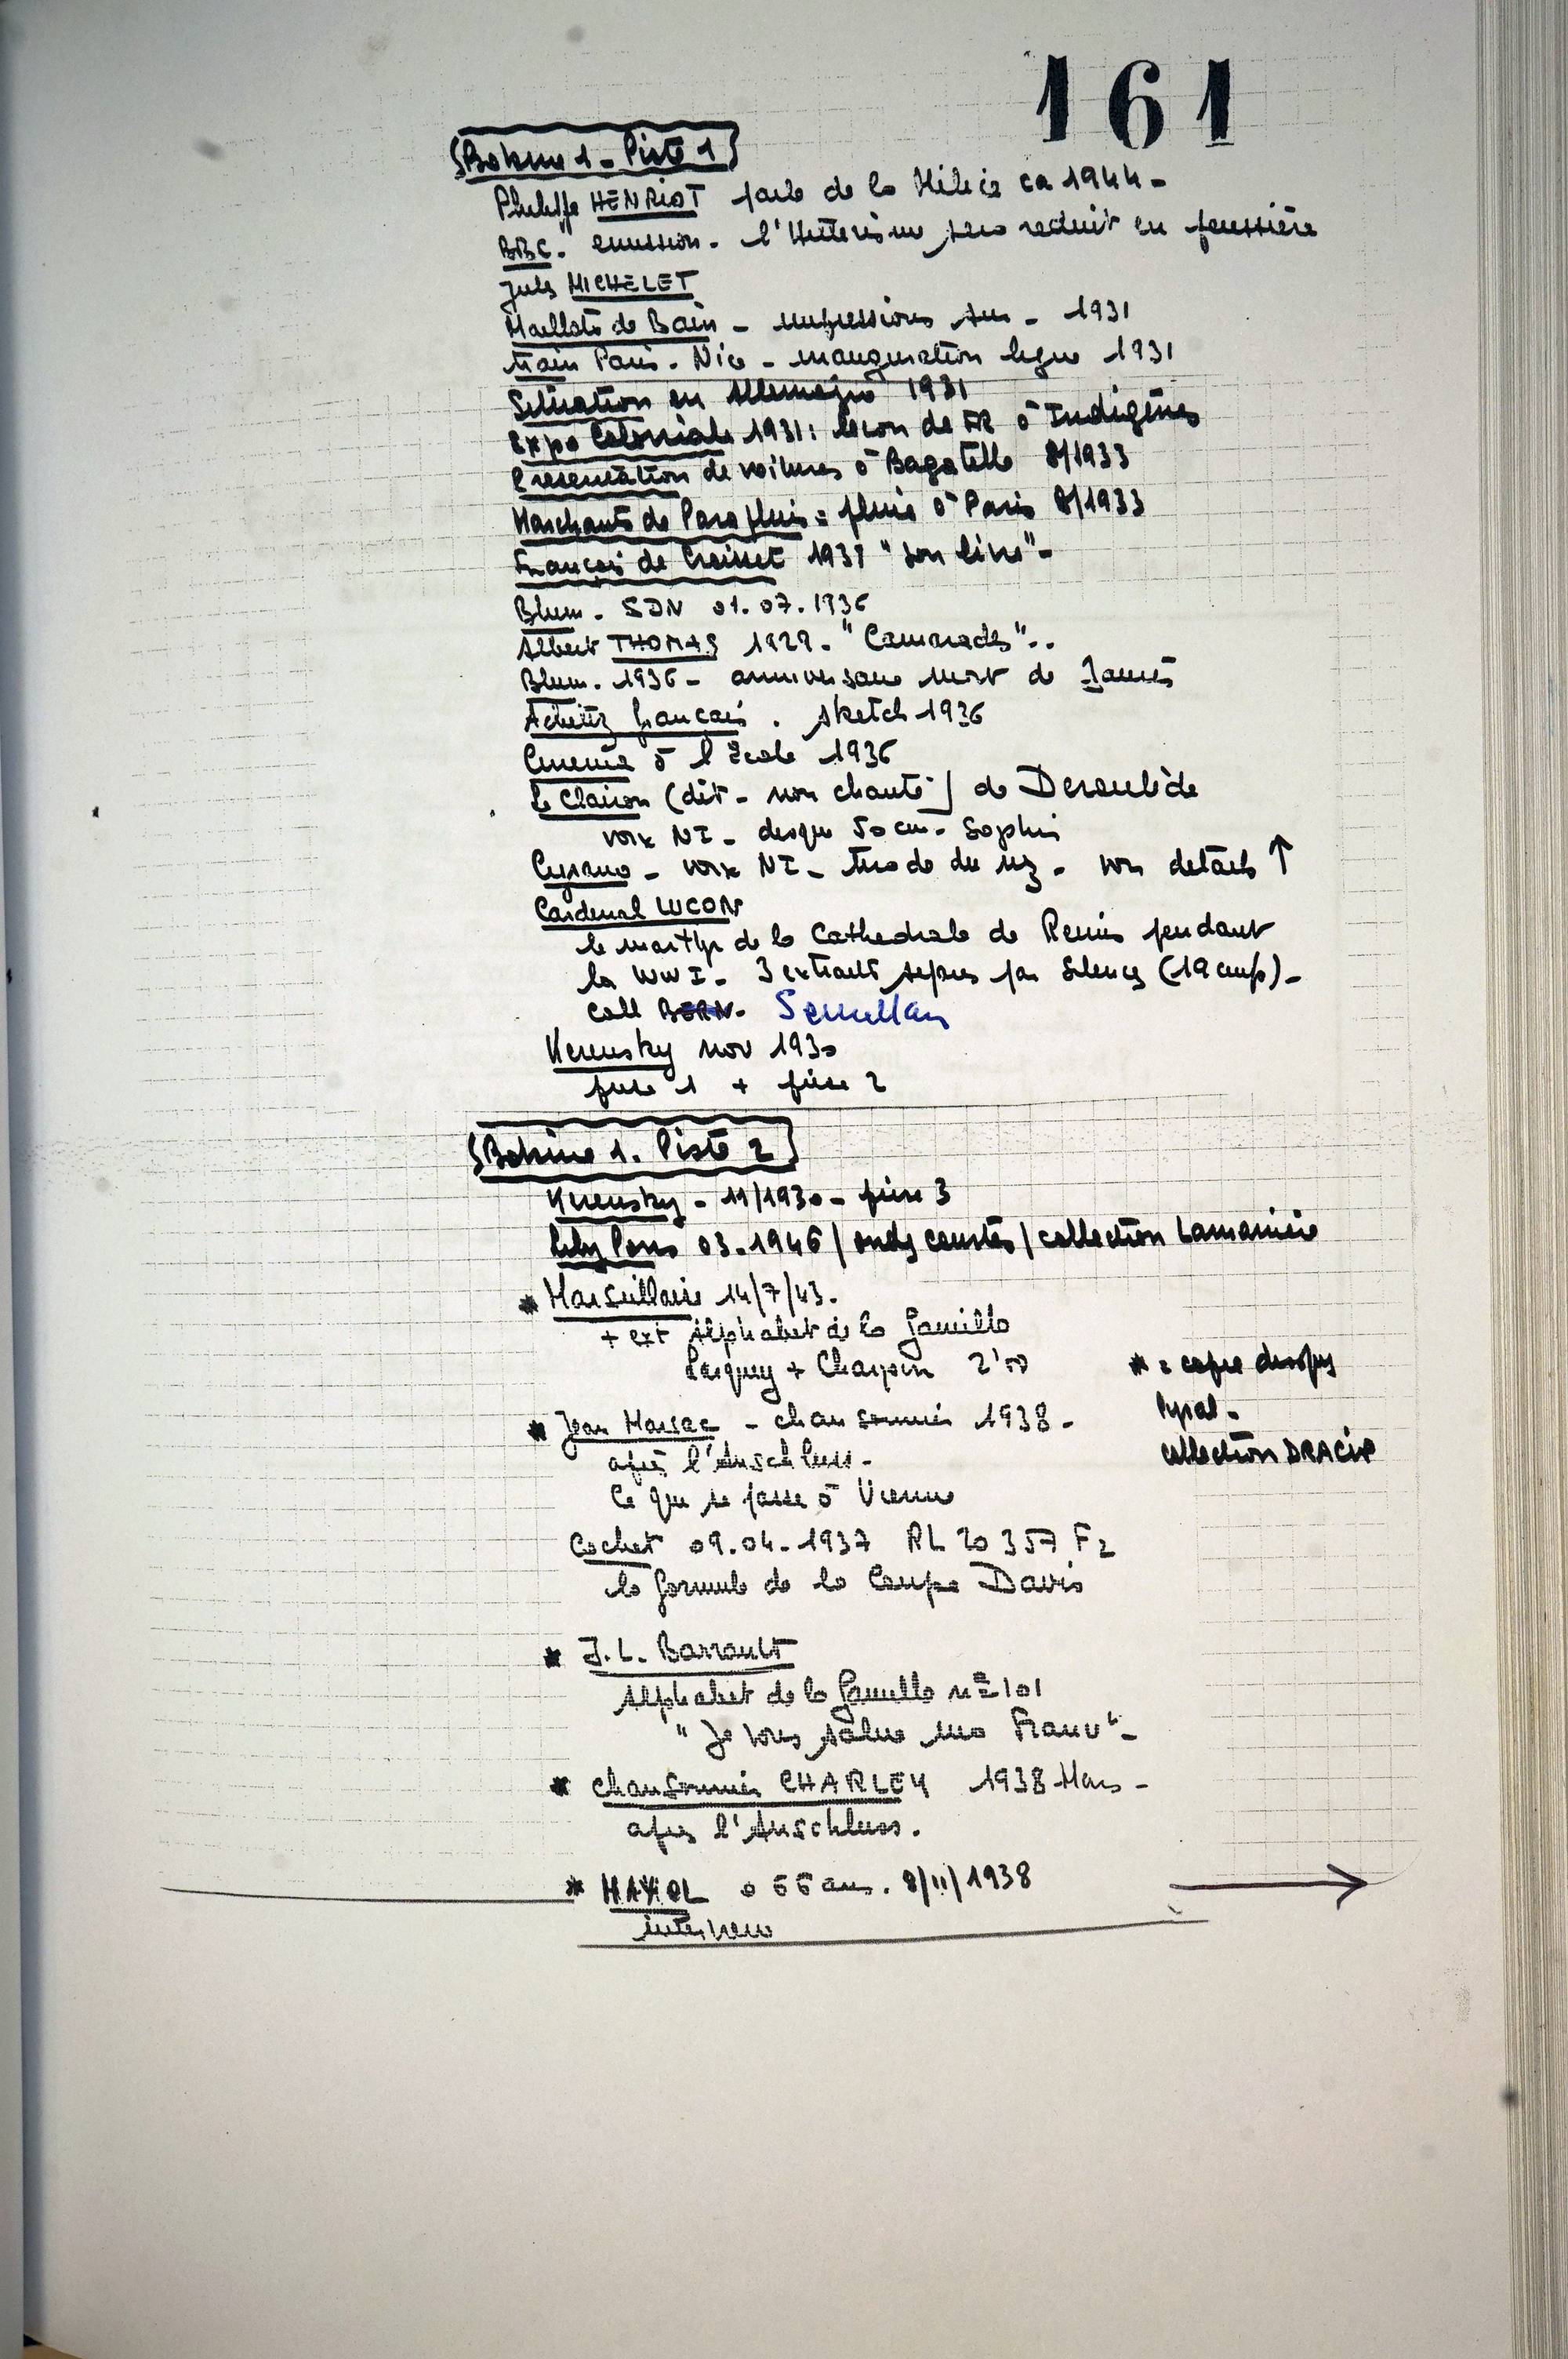 161
Bobine 1 - Piste 1
Philippe HENRIOT parle de la Milice ca 1944 -
BBC. emission - l'Hitlerisme sera reduit en poussière
Jules MICHELET
Maillots de Bain - impressions sur - 1931
train Paris - Nice - inauguration ligne 1931
Situation en Allemagne 1931
Expo Coloniale 1931: leçon de FR à Indigènes
Presentation de voitures à Bagatelle 8/1933
Marchants de Parapluis = pluie à Paris 8/1933
François de Croisset 1931 "son livre" -
Blum - SDN 01.07.1936
Albert THOMAS 1929 - "Camarades"..
Blum. 1936 - anniversaire mort de Jaurès
Achetez français. sketch 1936
Cinema à l'école 1936
Le Clairon (dit - non chanté) de Deroulède
voix NI - disque 50 cm - Saphir
Cyrano - voix NI - tirade du nez - voir details ↑
Cardinal LUCON
le martyr de la Cathedrale de Reims pendant
la WWI - 3 extraits separes par Silences (19 )-
coll
Kerensky nov 1930
face 1 + face 2
Bobine 1. Piste 2
Kerensky - 11/1930 - face 3
Lily Pons 03.1946 / ondes courtes / collection
* Marseillaise 14/7/43.
+ ext Alphabet de la famille
Larquey + Charpin 2'00
* = copie disques
Pyral -
collection
* Jean Marsac - chansonnier 1938 -
après l'Anschluss -
Ce que se passe à Vienne
Cochet 09.04.1937 RL 20 357 F2
la formule de la Coupe Davis
* J.L. Barrault
Alphabet de la famille nº 101
"Je vous salue ma France" -
* chansonnier CHARLEY 1938 Mars -
après l'Anschluss.
* MAYOL à 66 ans. 8/11/1938
interview